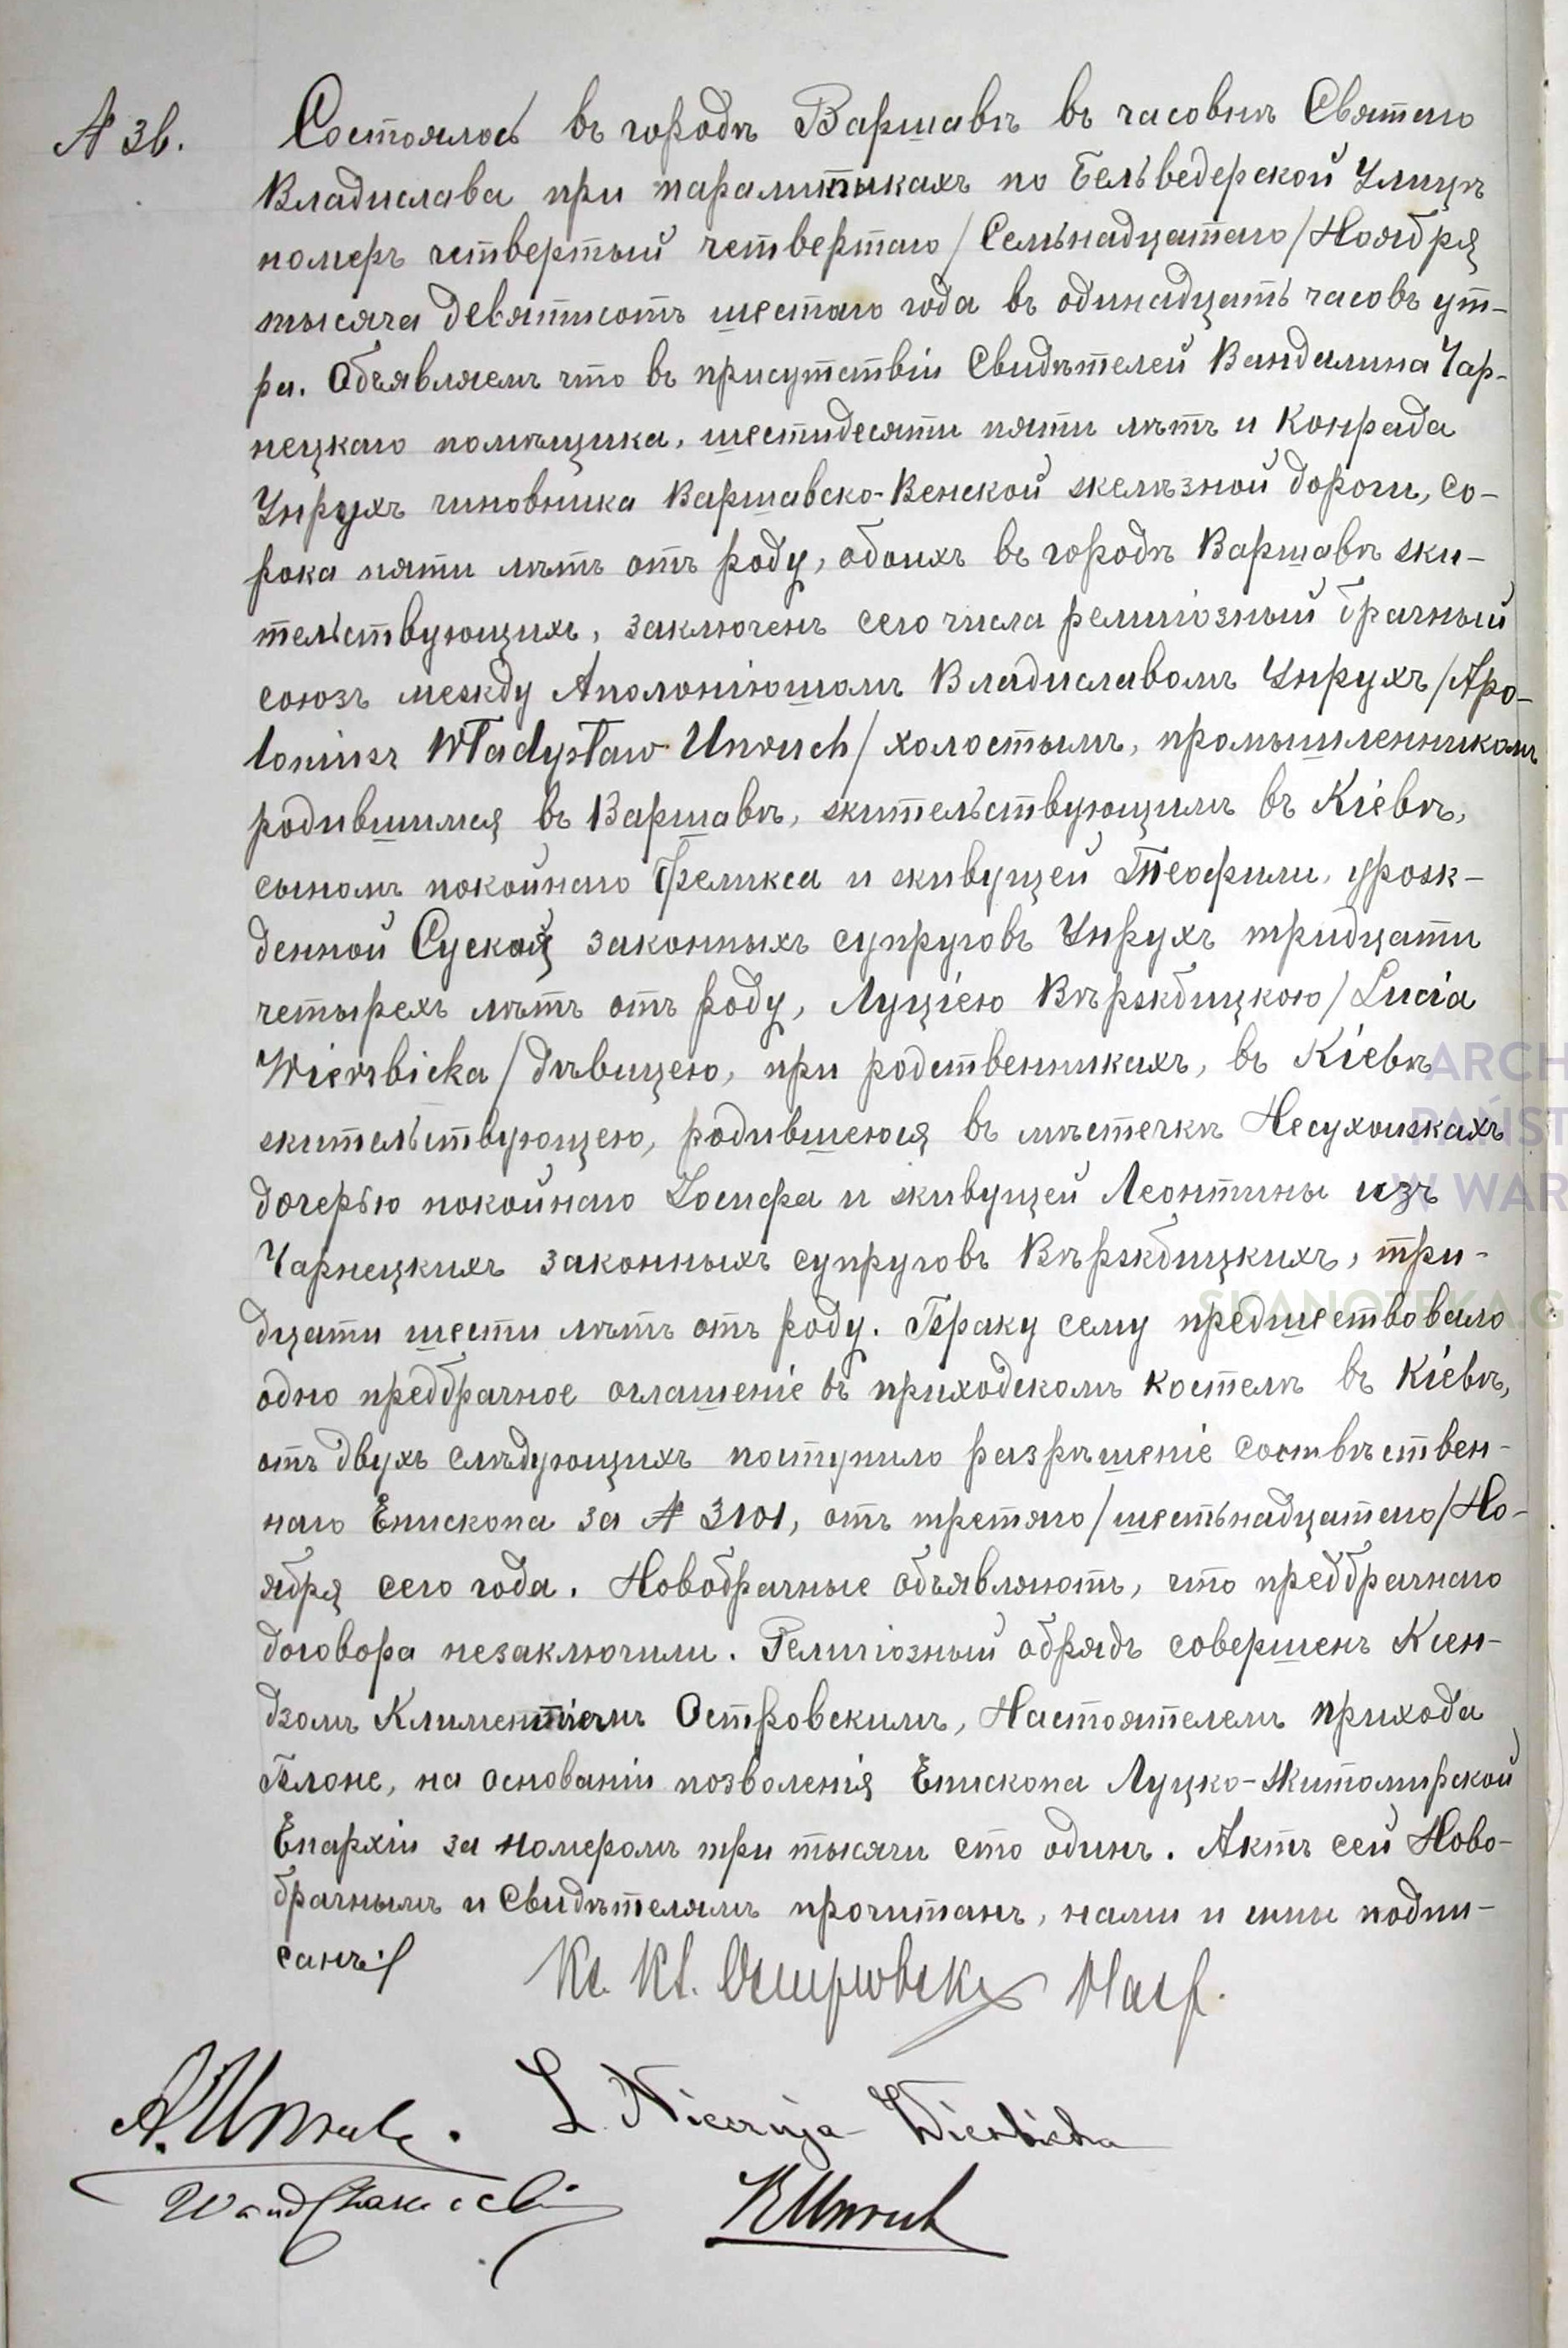 № 36.
Состоялось въ городѣ Варшавѣ въ часовнѣ Святаго
Владислава при паралитикахъ по Бельведерской Улицѣ
номеръ четвертый четвертаго /Семьнадцатаго/ Ноября
тысяча девятьсотъ шестаго года въ одинадцать часовъ ут-
ра. Объявляемъ что въ присутствіи Свидѣтелей Вандалина Чар-
нецкаго помѣщика, шестидесяти пяти лѣтъ и Конрада
Унрухъ чиновника Варшавско-Венской желѣзной дороги, со-
рока пяти лѣтъ отъ роду, обоихъ въ городѣ Варшавѣ жи-
тельствующихъ, заключенъ сего числа религіозный брачный
союзъ между Аполоніюшомъ Владиславомъ Унрухъ /Apo-
loniusz Władysław Unruch/ холостымъ, промышленникомъ
родившимся въ Варшавѣ, жительствующимъ въ Кіевѣ,
сыномъ покойнаго Феликса и живущей Теофили, урож-
денной Суской законныхъ супруговъ Унрухъ тридцати
четырехъ лѣтъ отъ роду, Луціею Вѣржбицкою /Lucia
Wierzbicka/ дѣвицею, при родственникахъ, въ Кіевѣ
жительствующею, родившеюся въ мѣстечкѣ Несухоижахъ
дочерью покойнаго Іосифа и живущей Леонтины изъ
Чарнецкихъ законныхъ супруговъ Вѣржбицкихъ, три-
дцати шести лѣтъ отъ роду. Браку сему предшествовало
одно предбрачное оглашеніе въ приходскомъ костелѣ въ Кіевѣ,
отъ двухъ слѣдующихъ поступило разрѣшеніе соотвѣтствен-
наго Епископа за № 3101, отъ третяго /шестьнадцатаго/ Но-
ября сего года. Новобрачные объявляютъ, что предбрачнаго
договора незаключили. Религіозный обрядъ совершенъ Ксен-
дзомъ Климентіемъ Островскимъ, Настоятелемъ прихода
Блоне, на основаніи позволенія Епископа Луцко-Житомирской
Епархіи за номеромъ три тысячи сто одинъ. Актъ сей Ново-
брачнымъ и Свидѣтелямъ прочитанъ, нами и ими подпи-
санъ.
Кс. Кл. Островскій
A. Unruh.
L. Wierzbicka
Wand Czarnecki
K Unruh
ARCH
PAŃST
W WAR
SKANOTEKA.G